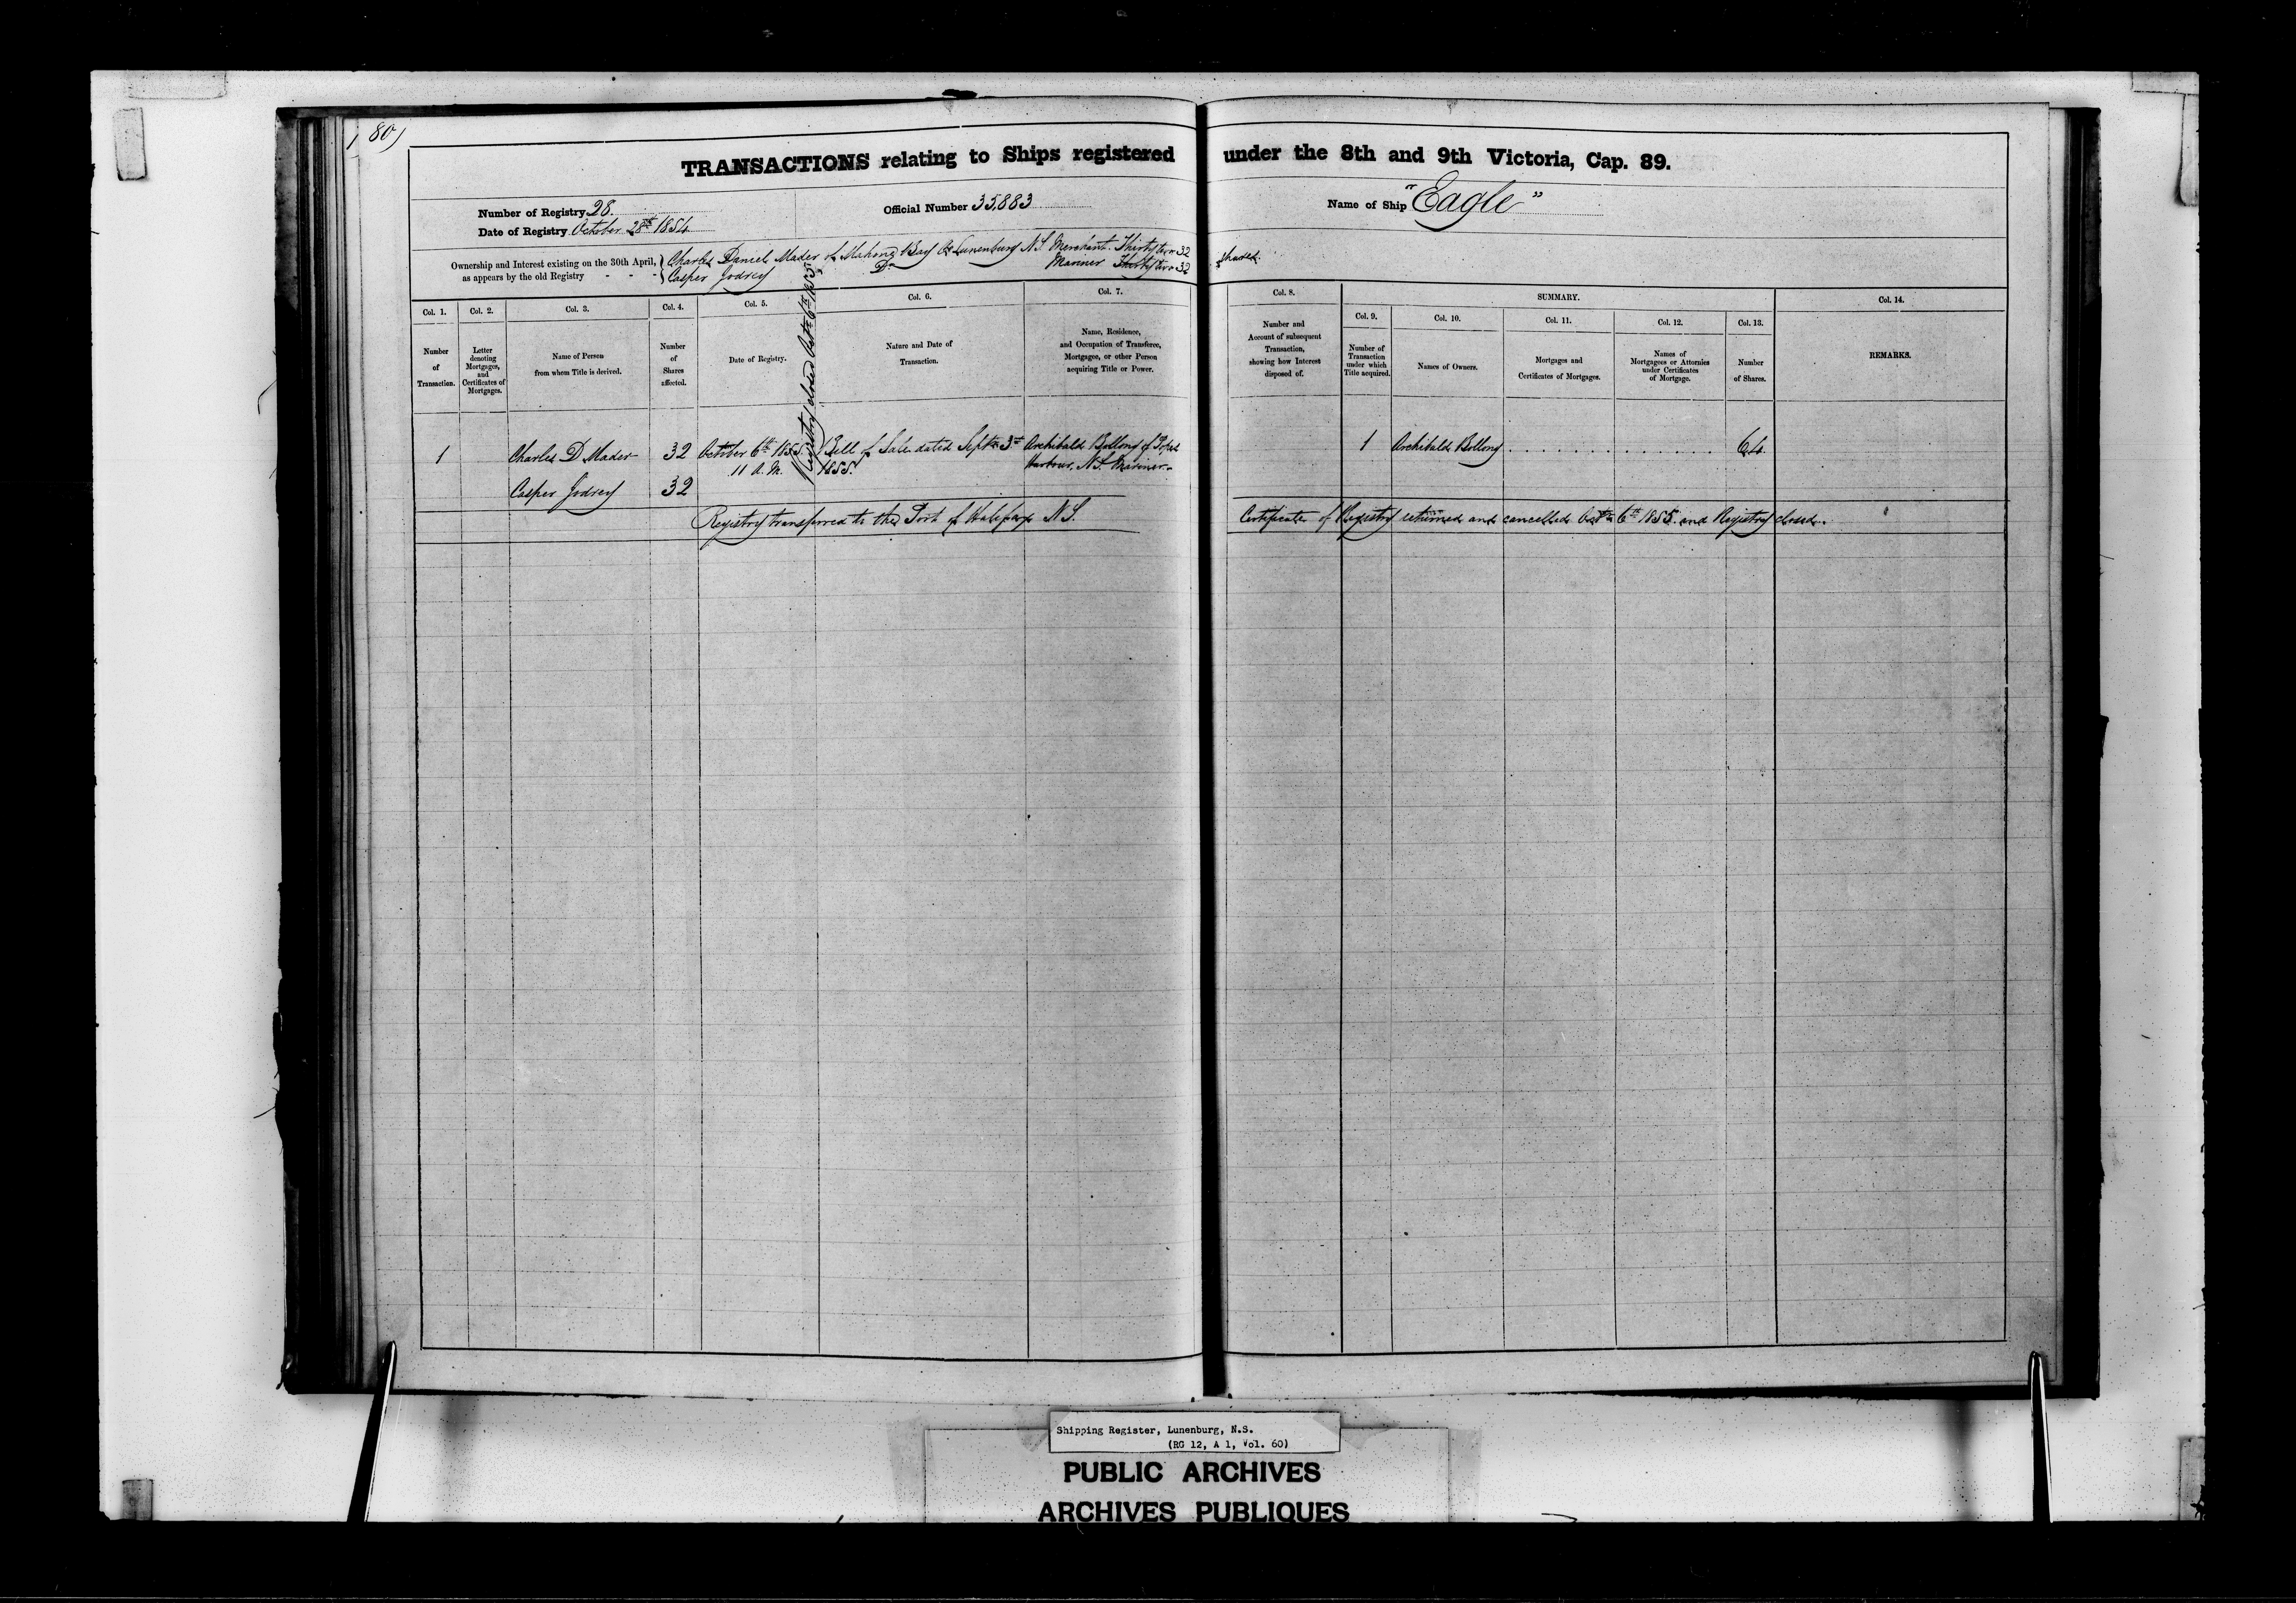 80
TRANSACTIONS relating to Ships registered under the 8th and 9th Victoria, Cap. 89.
Number of Registry 28. Official Number 35,883 Name of Ship "Eagle"
Date of Registry October 28th 1854
Ownership and Interest existing on the 30th April, as appears by the old Registry - - -
Charles Daniel Mader of Mahone Bay Co Lunenburg N.S Merchant. Thirty two 32 shares.
Casper Do Mariner Thirty two 32
Registry closed Octr 6th 1855
Col. 1. Number of Transaction.
Col. 2. Letter denoting Mortgages, and Certificates of Mortgages.
Col. 3. Name of Person from whom Title is derived.
Col. 4. Number of Shares affected.
Col. 5. Date of Registry.
Col. 6. Nature and Date of Transaction.
Col. 7. Name, Residence, and Occupation of Transferee, Mortgagee, or other Person acquiring Title or Power.
Col. 8. Number and Account of subsequent Transaction, showing how Interest disposed of.
SUMMARY.
Col. 9. Number of Transaction under which Title acquired.
Col. 10. Names of Owners.
Col. 11. Mortgages and Certificates of Mortgages.
Col. 12. Names of Mortgagees or Attornies under Certificates of Mortgage.
Col. 13. Number of Shares.
Col. 14. REMARKS.
1 Charles D Mader 32 October 6th 1855. Bill of Sale dated Septr 3rd Archibald Bollong of 1 Archibald Bollong . . . . . . . . . . . . . 64
11 A.M. 1855. Harbour, N.S. Mariner.
Casper 32
Registry transferred to the Port of Halifax N.S. Certificate of Registry returned and cancelled Octr 6th 1855. and Registry closed.
Shipping Register, Lunenburg, N.S.
(RG 12, A 1, Vol. 60)
PUBLIC ARCHIVES
ARCHIVES PUBLIQUES